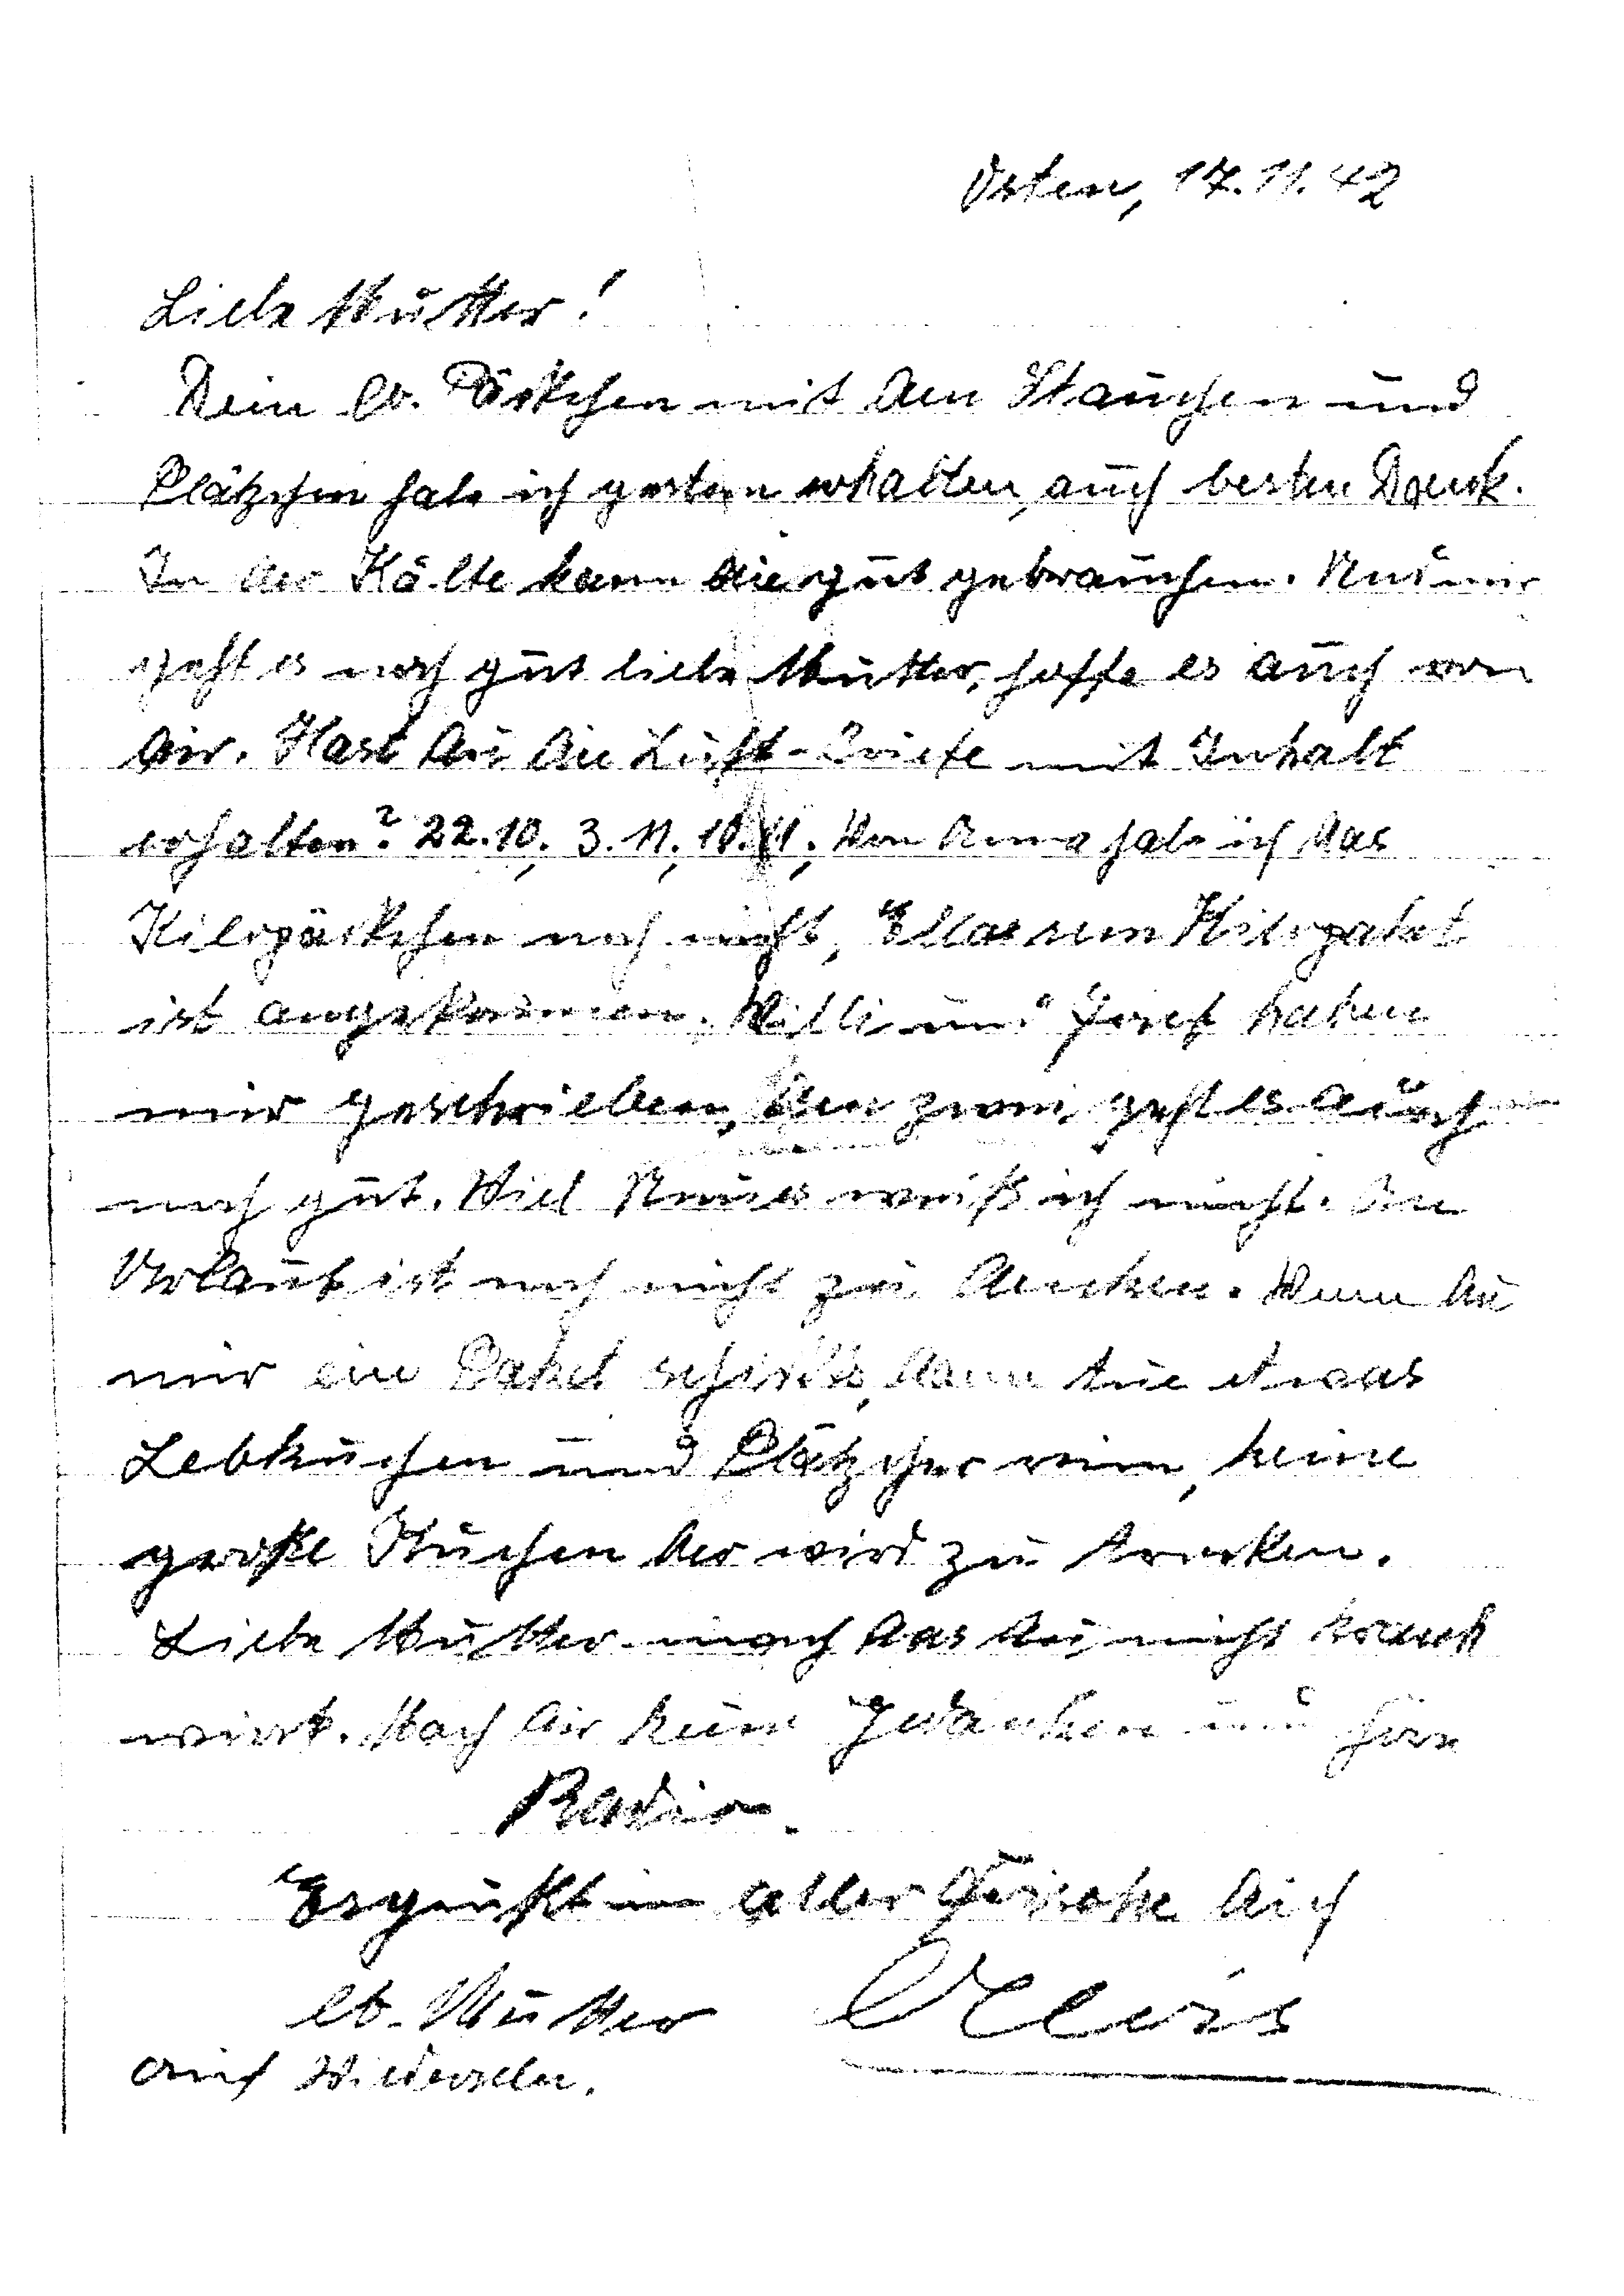 Osten, 17.11.42
Liebe Mutter!
Dein lb. Päckchen mit den Stauchen und
Plätzchen habe ich gestern erhalten, auch besten Dank.
In der Kälte kann die gut gebrauchen. Mir
geht es noch gut liebe Mutter, hoffe es auch von
Dir. Hast du die Luft-Briefe mit Inhalt
erhalten? 22.10, 3.11, 10.11, Von Anna habe ich das
Kilopäckchen noch nicht, Kilopaket
ist angekommen. Willi und Josef haben
mir geschrieben, den zwei geht es auch
noch gut. Viel Neues weiß ich nicht. An
Urlaub ist noch nicht zu denken. Wenn du
mir ein Paket schickst, dann tue etwas
Lebkuchen und Plätzcher rein, keine
große Kuchen der wird zu trocken.
Liebe Mutter mach das du nicht krank
wirst. Mach dir keine Gedanken und höre
Radio.
Es grüßt in aller Frische dich
lb. Mutter Alois
auf Wiedersehn.